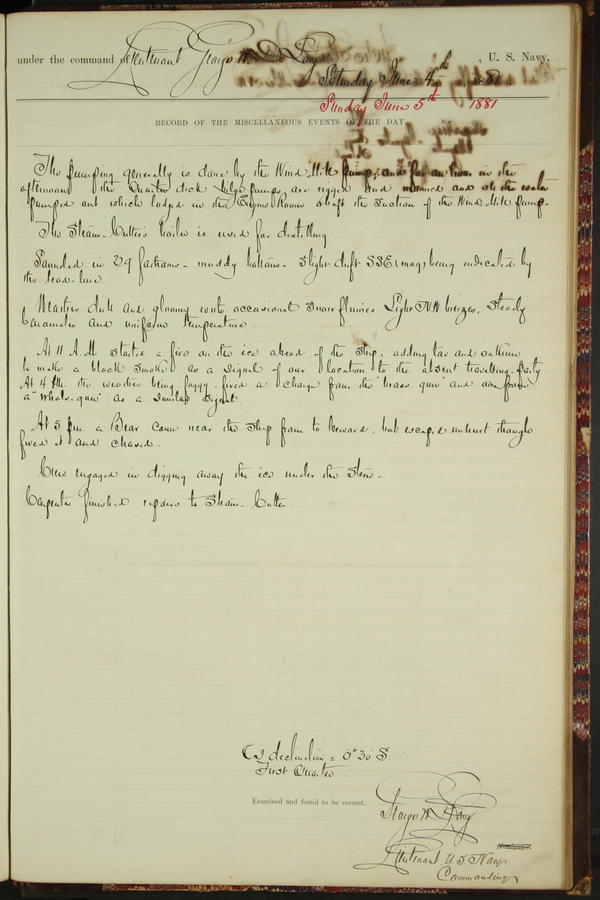 under the command of Lieutenant George W. De Long, U. S. Navy,
Saturday June 4th, 1881
Sunday June 5th 1881
RECORD OF THE MISCELLANEOUS EVENTS OF THE DAY.
The pumping generally is done by the Wind Mill pump, and for an hour in the
afternoon the Quarter deck bilge pumps are rigged and manned and all the water
pumped out which lodges in the Engine Room abaft the suction of the Wind Mill pump.
The Steam-Cutter's boiler is used for distilling.
Sounded in 29 fathoms - muddy bottom - Slight drift SSE (mag) being indicated by
the lead-line.
Weather dull and gloomy with occasional snow flurries Light NW breezes. Steady
barometer and uniform temperature.
At 11 A.M. started a fire on the ice ahead of the Ship, adding tar and oakum
to make a black smoke as a signal of our location to the absent travelling-party
At 4 P.M. the weather being foggy fired a charge from the brass gun and one from
a "whale-gun" as a similar signal.
At 5 p.m. a Bear came near the Ship from to leeward, but escaped unhurt though
fired at and chased.
Crew engaged in digging away the ice under the Stern.
Carpenter finished repairs to Steam-Cutter.
declination = 0° 30' S
First Quarter
Examined and found to be correct.
George W. De Long
Lieutenant U.S. Navy
Commanding